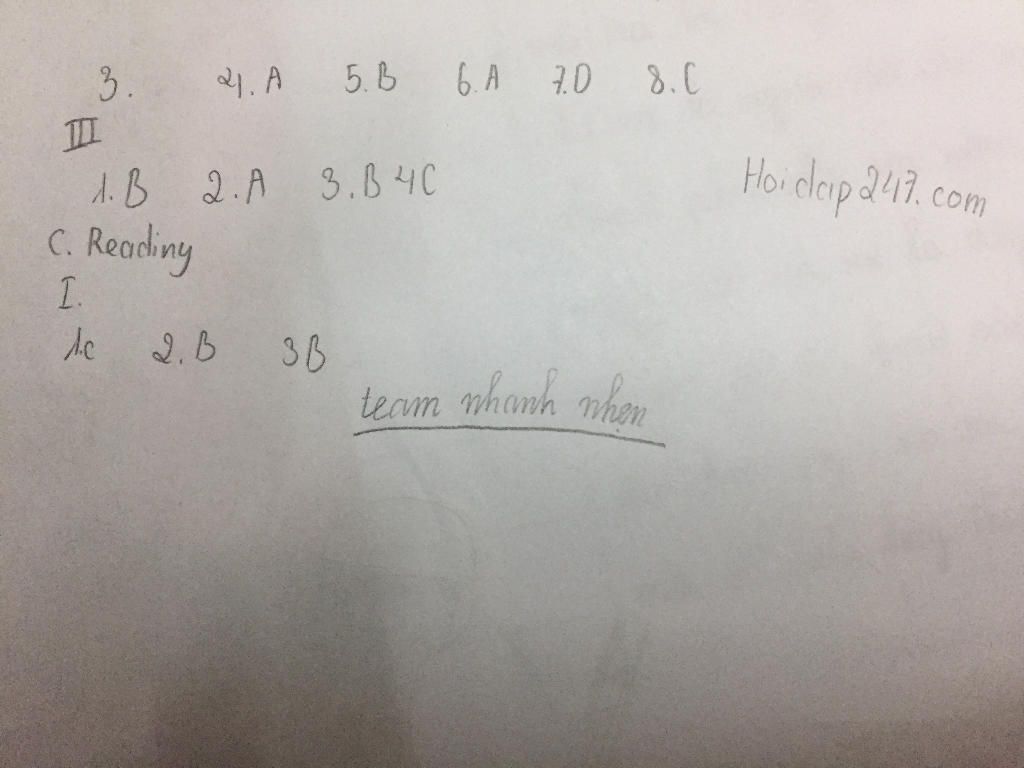 3. 4.A 5.B 6.A 7.D 8.C
III
1.B 2.A 3.B 4C
Hoidap247.com
C. Reading
I.
1.c 2.B 3B
team nhanh nhẹn